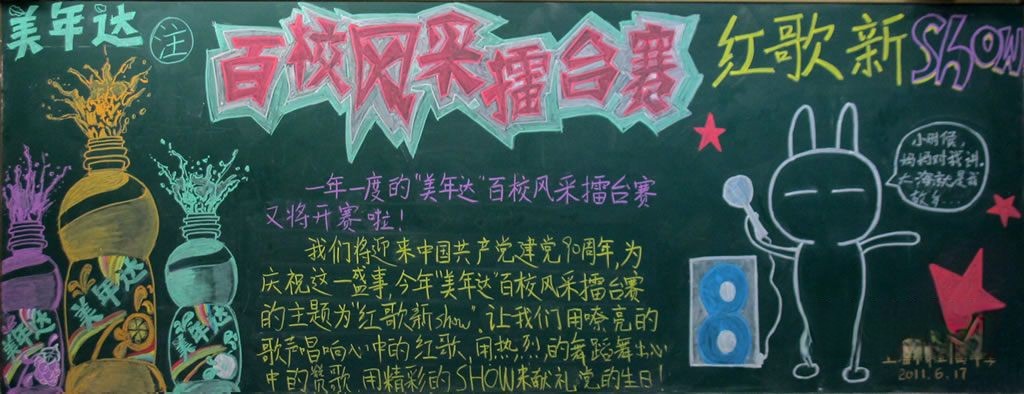 美年达
注
百校风采擂台赛
红歌新Show
小时候,
妈妈对我讲.
大海就是我
故乡…
一年一度的"美年达"百校风采擂台赛
又将开赛啦!
我们将迎来中国共产党建党90周年,为
庆祝这一盛事,今年"美年达"百校风采擂台赛
的主题为"红歌新show".让我们用嘹亮的
歌声唱响心中的红歌,用热烈的舞蹈舞出心
中的赞歌,用精彩的SHOW来献礼党的生日!
美年达
美年达
美年达
2011.6.17